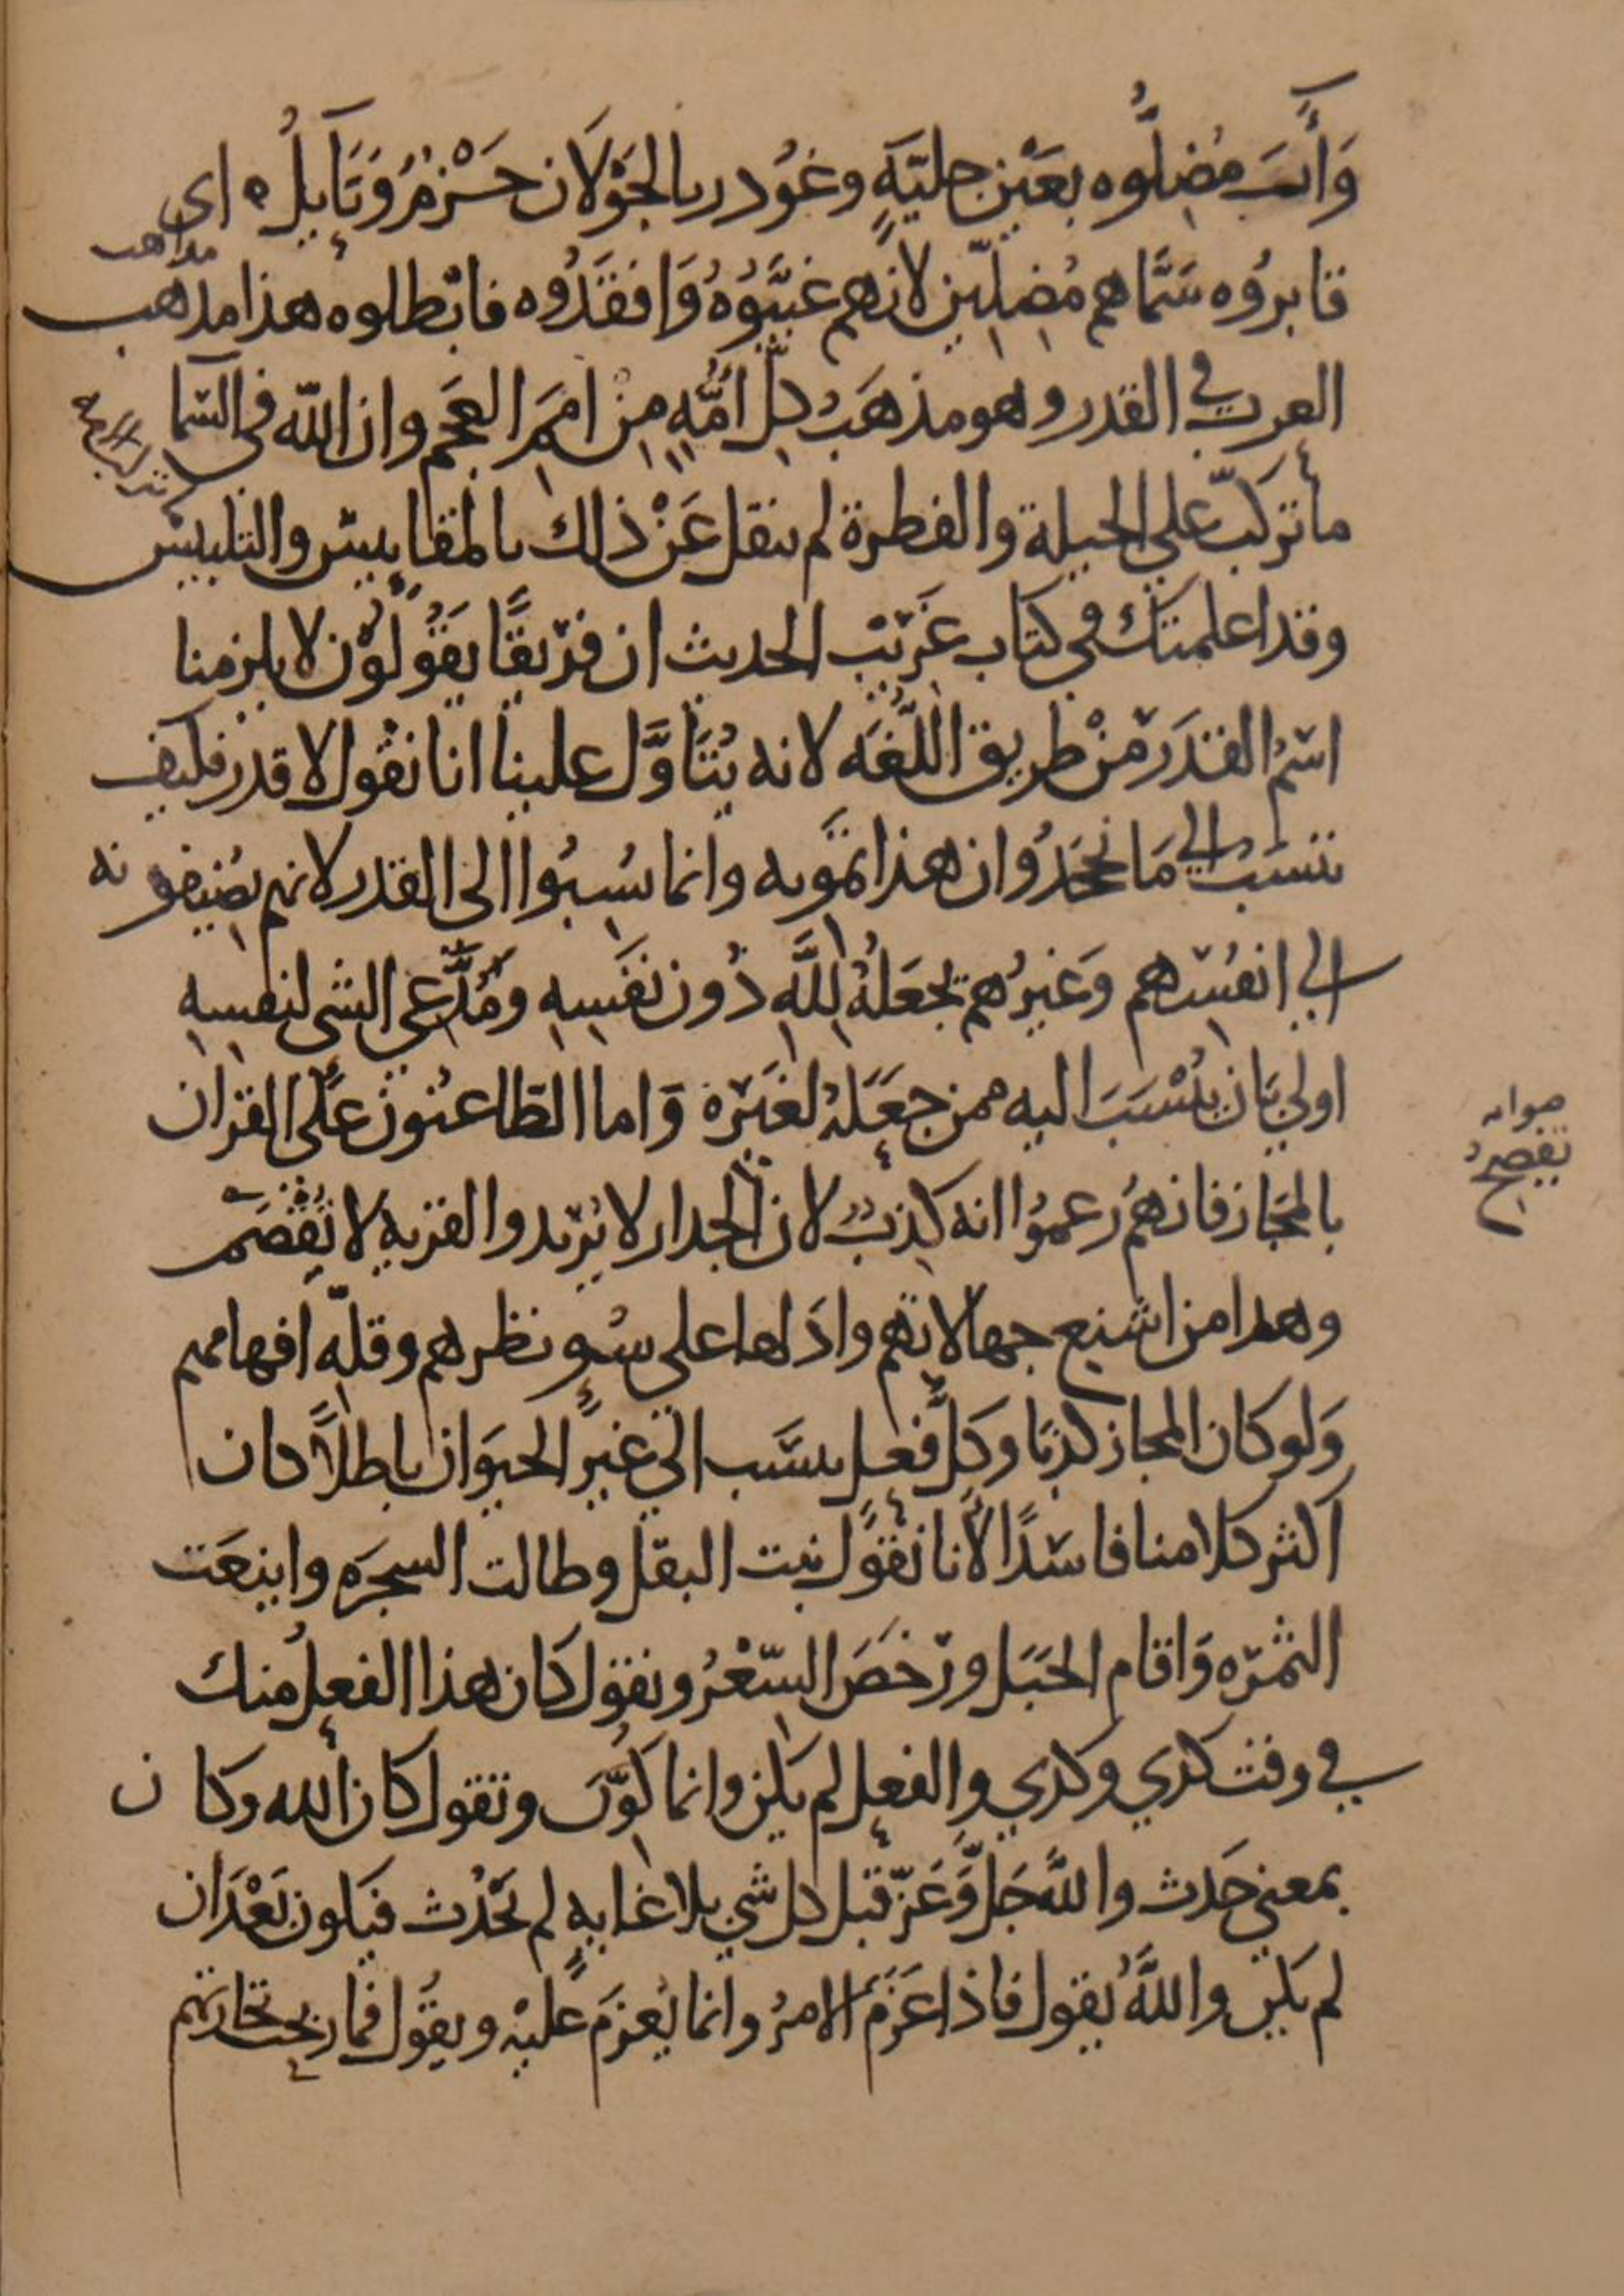 وَآبَ مُضِلُّوه بعَيْنٍ جليّةٍ وغُودر بالجَوْلان حَزْمٌ وَنَايِلُ ه اى
قابروُه سَمَّاهم مُضِلّين لانهم غيَّبُوهُ وَافقَدُوه فابْطلوه هذا مذهب
مذاهب
العرب في القدر وهو مذهَبُ كلّ امَّةٍ مِنْ امَمِ العَجَم وان الله في السَّما
ما تركبّ على الجبلة والفطرة لم ينقل عَنْ ذلك بالمقاييس والتلبيس
وقد اعلمتك في كتاب غَريْب الحديث ان فرِيقًا يَقُولُوْن لا يلزمنا
اسْمُ القَدَر مِنْ طريق اللُّغَه لانه يُتَاوَّل علينا انا نقُول لا قدر فكيف
ننسَبُ الى مَا نجْحَدُ وان هذا تمَّويه وانما نُسِبُوا الى القدر لانهم يُضِيفونه
الى انفُسِهم وَغيرُهم يجْعَلُهُ لِلَّهِ دُون نَفسِهِ ومُدَّعي الشى لنفسِهِ
اولى بَان يُنْسَبَ اليه ممن جعَلَهُ لغَيْره وَاما الطّاعنُون عَلَى القران
بالمَجَاز فانهُم زعمُوا انه كذِبٌ لان الجدار لا يُرِيد والقريه لا تُقْصَم
صوابه
تفصحُ
وهذا من اشنع جهالاتهم وادَلها على سُوءِ نظرهم وقلّهِ افهامهم
وَلو كان المجاز كذبًا وكلُّ فعلٍ ينسَب الى غيرِ الحيَوان باطلاً كان
اكثر كلامنا فاسدًا لأنا نقُول نبت البقل وطالت الشجرَه واينعَت
الثمرَه وَاقام الجَبَل ورَخصَ السّعْرُ ونقول كان هذا الفعلُ منك
في وقت كذي وكذي والفعل لم يَكُن وانما كُوِّنَ وتقول كان الله وكان
بمعني حَدث واللَّه جَلَّ وَعَزّ قبل كل شي بلا غايهٍ لم يَحْدُث فيَكون بَعْدَ ان
لم يَكن واللَّهُ يقول فاذا عَزَمَ الامرُ وانما يُعزمَ عليْهِ ويقُول فما ربحت تجارتهم